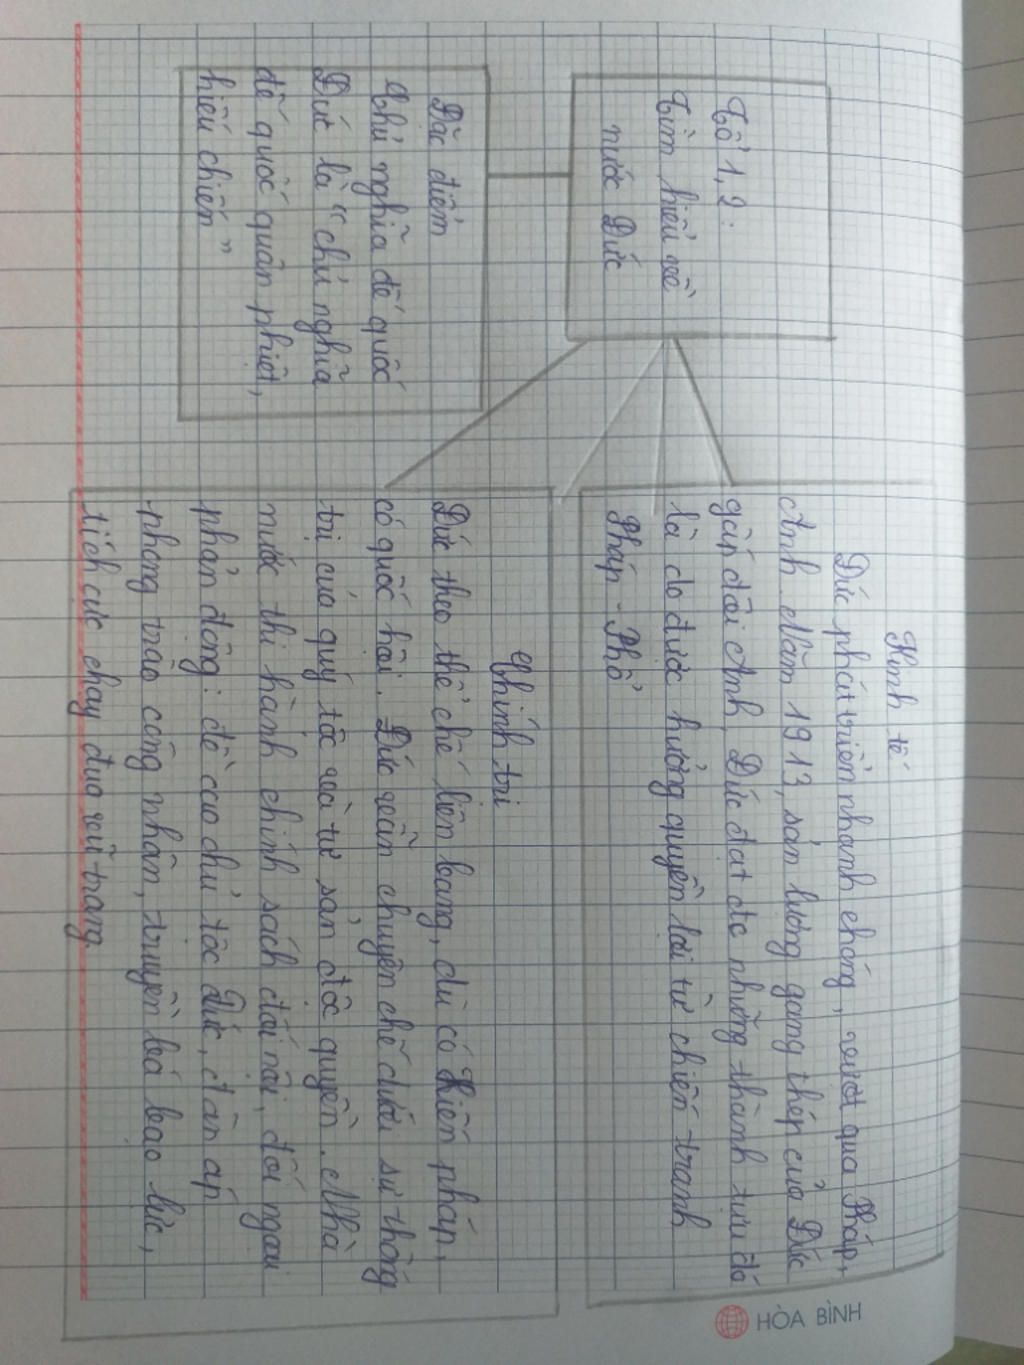 Tổ 1, 2 :
Tìm hiểu về
nước Đức
Kinh tế
Đức phát triển nhanh chóng, vượt qua Pháp,
Anh. Năm 1913, sản lượng gang thép của Đức
gấp đôi Anh, Đức đạt dc những thành tựu đó
là do được hưởng quyền lợi từ chiến tranh
Pháp - Phổ
Đặc điểm
Chủ nghĩa đế quốc
Đức là "chủ nghĩa
đế quốc quân phiệt,
hiếu chiến"
Chính trị
Đức theo thể chế liên bang, dù có Hiến pháp,
có quốc hội. Đức vẫn chuyên chế dưới sự thống
trị của quý tộc và tư sản độc quyền. Nhà
nước thi hành chính sách đối nội, đối ngoại
phản động: đề cao chủ tộc Đức, đàn áp
phong trào công nhân, truyền bá bạo lực,
tích cực chạy đua vũ trang
HÒA BÌNH